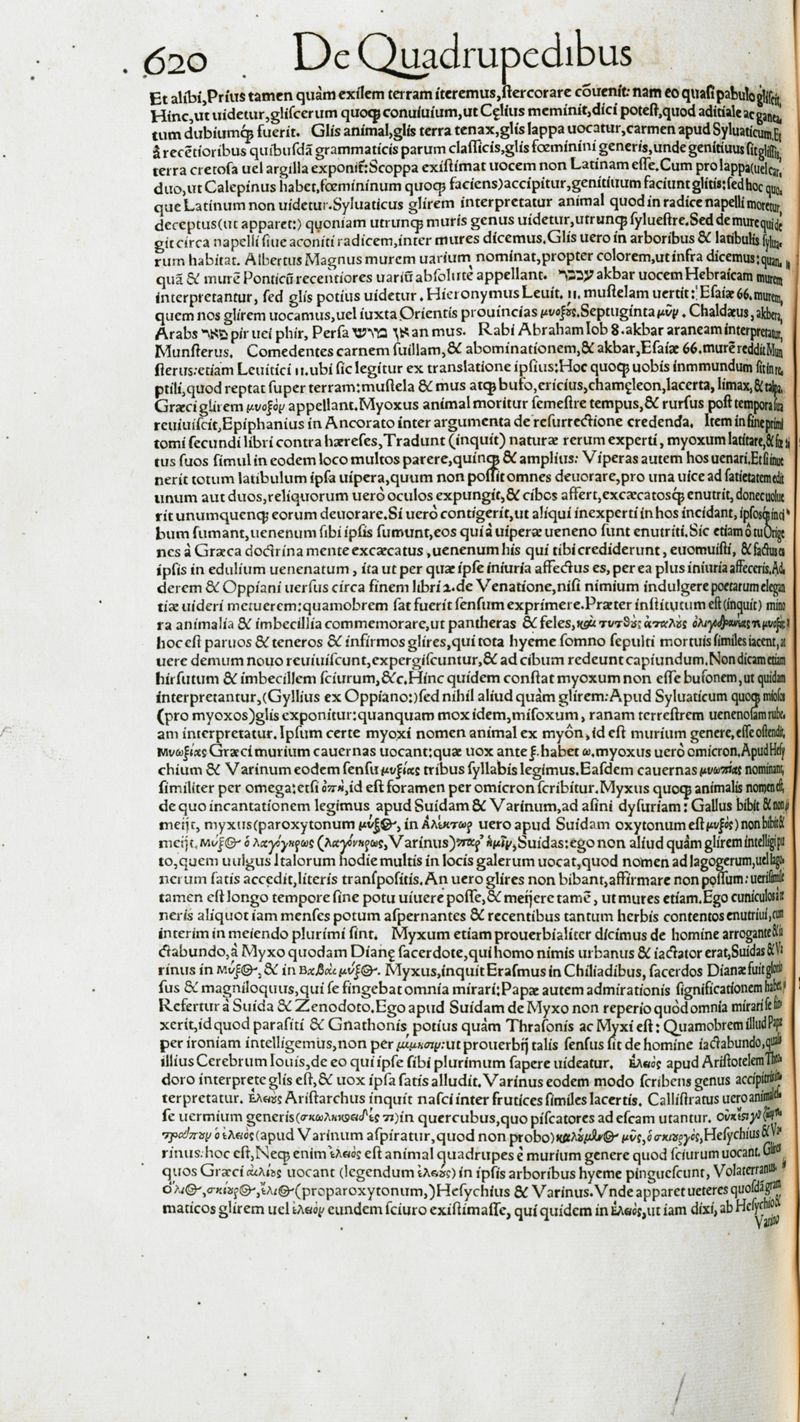 620 De Quadrupedibus
Et alibi, Prius tamen quàm exilem terram iteremus, stercorare cõuenit: nam eo quasi pabulo gliscit,
Hinc, ut uidetur, gliscerum quoq; conuiuium, ut Cęlius meminit, dici potest, quod aditiale ac ganea,
tum dubiumq́; fuerit. Glis animal, glis terra tenax, glis lappa uocatur, carmen apud Syluaticum. Et
â recẽtioribus quibusdã grammaticis parum classicis, glis fœminini generis, unde genitiuus sit glissis,
terra cretosa uel argilla exponit: Scoppa existimat uocem non Latinam esse. Cum pro lappa (uel car,
duo, ut Calepinus habet, fœmininum quoq; faciens) accipitur, genitiuum faciunt glitis: sed hoc quo,
que Latinum non uidetur. Syluaticus glirem interpretatur animal quod in radice napelli moretur,
deceptus (ut apparet:) quoniam utrunq; muris genus uidetur, utrunq; syluestre. Sed de mure qui de
git circa napelli siue aconiti radicem, inter mures dicemus. Glis uero in arboribus & latibulis syluarum
rum habitat. Albertus Magnus murem uarium nominat, propter colorem, ut infra dicemus: quan,
quã & murẽ Ponticũ recentiores uariũ absolutè appellant. עכבר akbar uocem Hebraicam murem
interpretantur, sed glis potius uidetur. Hieronymus Leuit. 11. mustelam uertit: Esaiæ 66. murem,
quem nos glirem uocamus, uel iuxta Orientis prouincias μυοξός. Septuaginta μῦν. Chaldæus, akbera,
Arabs פאר pir uel phir, Persa אן מוש an mus. Rabi Abraham Iob 8. akbar araneam interpretatur,
Munsterus. Comedentes carnem suillam, & abominationem, & akbar, Esaiæ 66. murẽ reddit Mun
sterus: etiam Leuitici 11. ubi sic legitur ex translatione ipsius: Hoc quoq; uobis inmmundum sit in re,
ptili, quod reptat super terram: mustela & mus atq; bufo, ericius, chamęleon, lacerta, limax, & talpa.
Græci glirem μυοξὸν appellant. Myoxus animal moritur semestre tempus, & rursus post tempora sua
reuiuiscit, Epiphanius in Ancorato inter argumenta de resurrectione credenda. Item in fine primi
tomi secundi libri contra hæreses, Tradunt (inquit) naturæ rerum experti, myoxum latitare, & fœ
tus suos simul in eodem loco multos parere, quinq; & amplius: Viperas autem hos uenari. Et si inue
nerit totum latibulum ipsa uipera, quum non possit omnes deuorare, pro una uice ad satietatem edit
unum aut duos, reliquorum uerò oculos expungit, & cibos affert, excæcatosq́; enutrit, donec uolue
rit unumquenq; eorum deuorare. Si uerò contigerit, ut aliqui inexperti in hos incidant, ipsosq́; in ci
bum sumant, uenenum sibi ipsis sumunt, eos qui à uiperæ ueneno sunt enutriti. Sic etiam ô tu Orige
nes à Græca doctrina mente excæcatus, uenenum his qui tibi crediderunt, euomuisti, & factus es
ipsis in edulium uenenatum, ita ut per quæ ipse iniuria affectus es, per ea plus iniuria affeceris. Ad,
derem & Oppiani uersus circa finem libri 2. de Venatione, nisi nimium indulgere poetarum elegan
tiæ uideri metuerem: quamobrem sat fuerit sensum exprimere. Præter institutum est (inquit) mino
ra animalia & imbecillia commemorare, ut pantheras & feles,
hoc est paruos & teneros & infirmos glires, qui tota hyeme somno sepulti mortuis similes iacent, at
uere demum nouo reuiuiscunt, expergiscuntur, & ad cibum redeunt capiundum. Non dicam etiam
hirsutum & imbecillem sciurum, &c. Hinc quidem constat myoxum non esse bufonem, ut quidam
interpretantur, (Gyllius ex Oppiano:) sed nihil aliud quàm glirem: Apud Syluaticum quoq; miosos
(pro myoxos) glis exponitur: quanquam mox idem, misoxum, ranam terrestrem uenenosam rube,
am interpretatur. Ipsum certe myoxi nomen animal ex myôn, id est murium genere, esse ostendit,
Μυωξίας Græci murium cauernas uocant: quæ uox ante ξ. habet ω. myoxus uerò omicron. Apud Hesy
chium & Varinum eodem sensu μυξίας tribus syllabis legimus. Easdem cauernas μυωπίας nominant,
similiter per omega: etsi ὀπὴ, id est foramen per omicron scribitur. Myxus quoq; animalis nomen est,
de quo incantationem legimus apud Suidam & Varinum, ad asini dysuriam: Gallus bibit & non
meijt, myxus (paroxytonum μύξος, in Αλέκτωρ uero apud Suidam oxytonum est μυξός) non bibit &
meijt. Μύξος ὁ λαγόγηρως (λαγόνηρως, Varinus) παρ' ἡμῖν, Suidas: ego non aliud quàm glirem intelligi pu
to, quem uulgus Italorum hodie multis in locis galerum uocat, quod nomen ad lagogerum, uel lago
nerum satis accedit, literis transpositis. An uero glires non bibant, affirmare non possum: uerisimile
tamen est longo tempore sine potu uiuere posse, & meijere tamẽ, ut mures etiam. Ego cuniculos
neris aliquot iam menses potum aspernantes & recentibus tantum herbis contentos enutriui, cum
interim in meiendo plurimi sint. Myxum etiam prouerbialiter dicimus de homine arrogante & ia
ctabundo, à Myxo quodam Dianę sacerdote, qui homo nimis urbanus & iactator erat, Suidas & Va
rinus in Μύξος, & in Βαβαὶ μύξος. Myxus, inquit Erasmus in Chiliadibus, sacerdos Dianæ fuit glorio
sus & magniloquus, qui se fingebat omnia mirari: Papæ autem admirationis significationem habet.
Refertur à Suida & Zenodoto. Ego apud Suidam de Myxo non reperio quòd omnia mirari se fin
xerit, id quod parasiti & Gnathonis potius quàm Thrasonis ac Myxi est: Quamobrem illud Papæ
per ironiam intelligemus, non per μίμησιν: ut prouerbij talis sensus sit de homine iactabundo, qualis
illius Cerebrum Iouis, de eo qui ipse sibi plurimum sapere uideatur. Ελειὸς apud Aristotelem Theo
doro interprete glis est, & uox ipsa satis alludit. Varinus eodem modo scribens genus accipitris in
terpretatur. Ελειὸς Aristarchus inquit nasci inter frutices similes lacertis. Callistratus uero animal es
se uermium generis (σκωληκοειδές τι) in quercubus, quo piscatores ad escam utantur.
ὁ ἐλειὸς (apud Varinum aspiratur, quod non probo) καλούμενος μῦς, ὁ σκίουρος, Hesychius & Va
rinus: hoc est, Neq; enim ἐλειὸς est animal quadrupes è murium genere quod sciurum uocant. Glires
quos Græci αιλιὸς uocant (legendum ἐλειὸς) in ipsis arboribus hyeme pinguescunt, Volaterranus.
Ὄλιος, σκίουρος, ἔλιος (proparoxytonum,) Hesychius & Varinus. Vnde apparet ueteres quosdã gram
maticos glirem uel ἐλειὸν eundem sciuro existimasse, qui quidem in Ελειὸς, ut iam dixi, ab Hesychio &
Varino